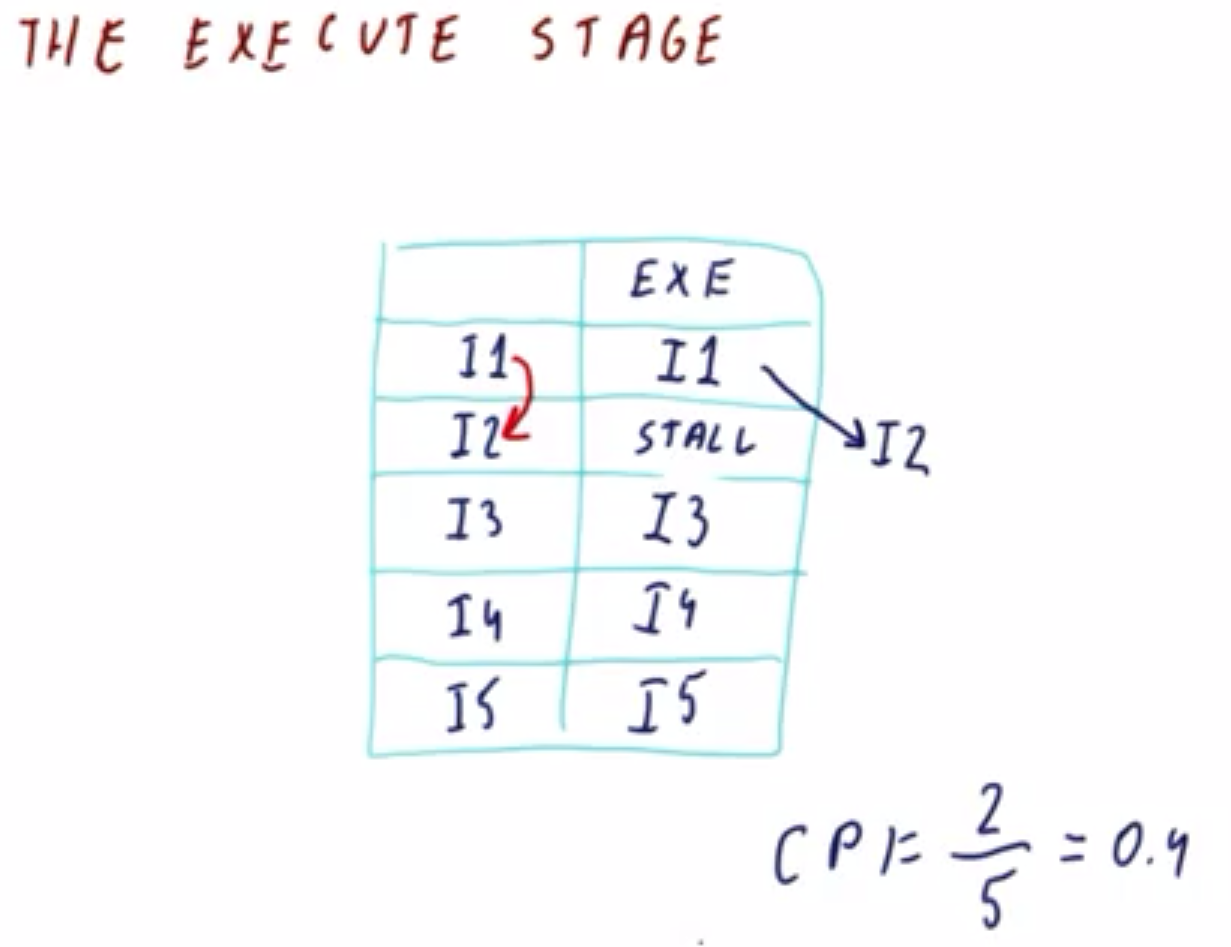 THE EXECUTE STAGE
EXE
I1 I1
I2 STALL I2
I3 I3
I4 I4
I5 I5
CPI= 2/5 = 0.4